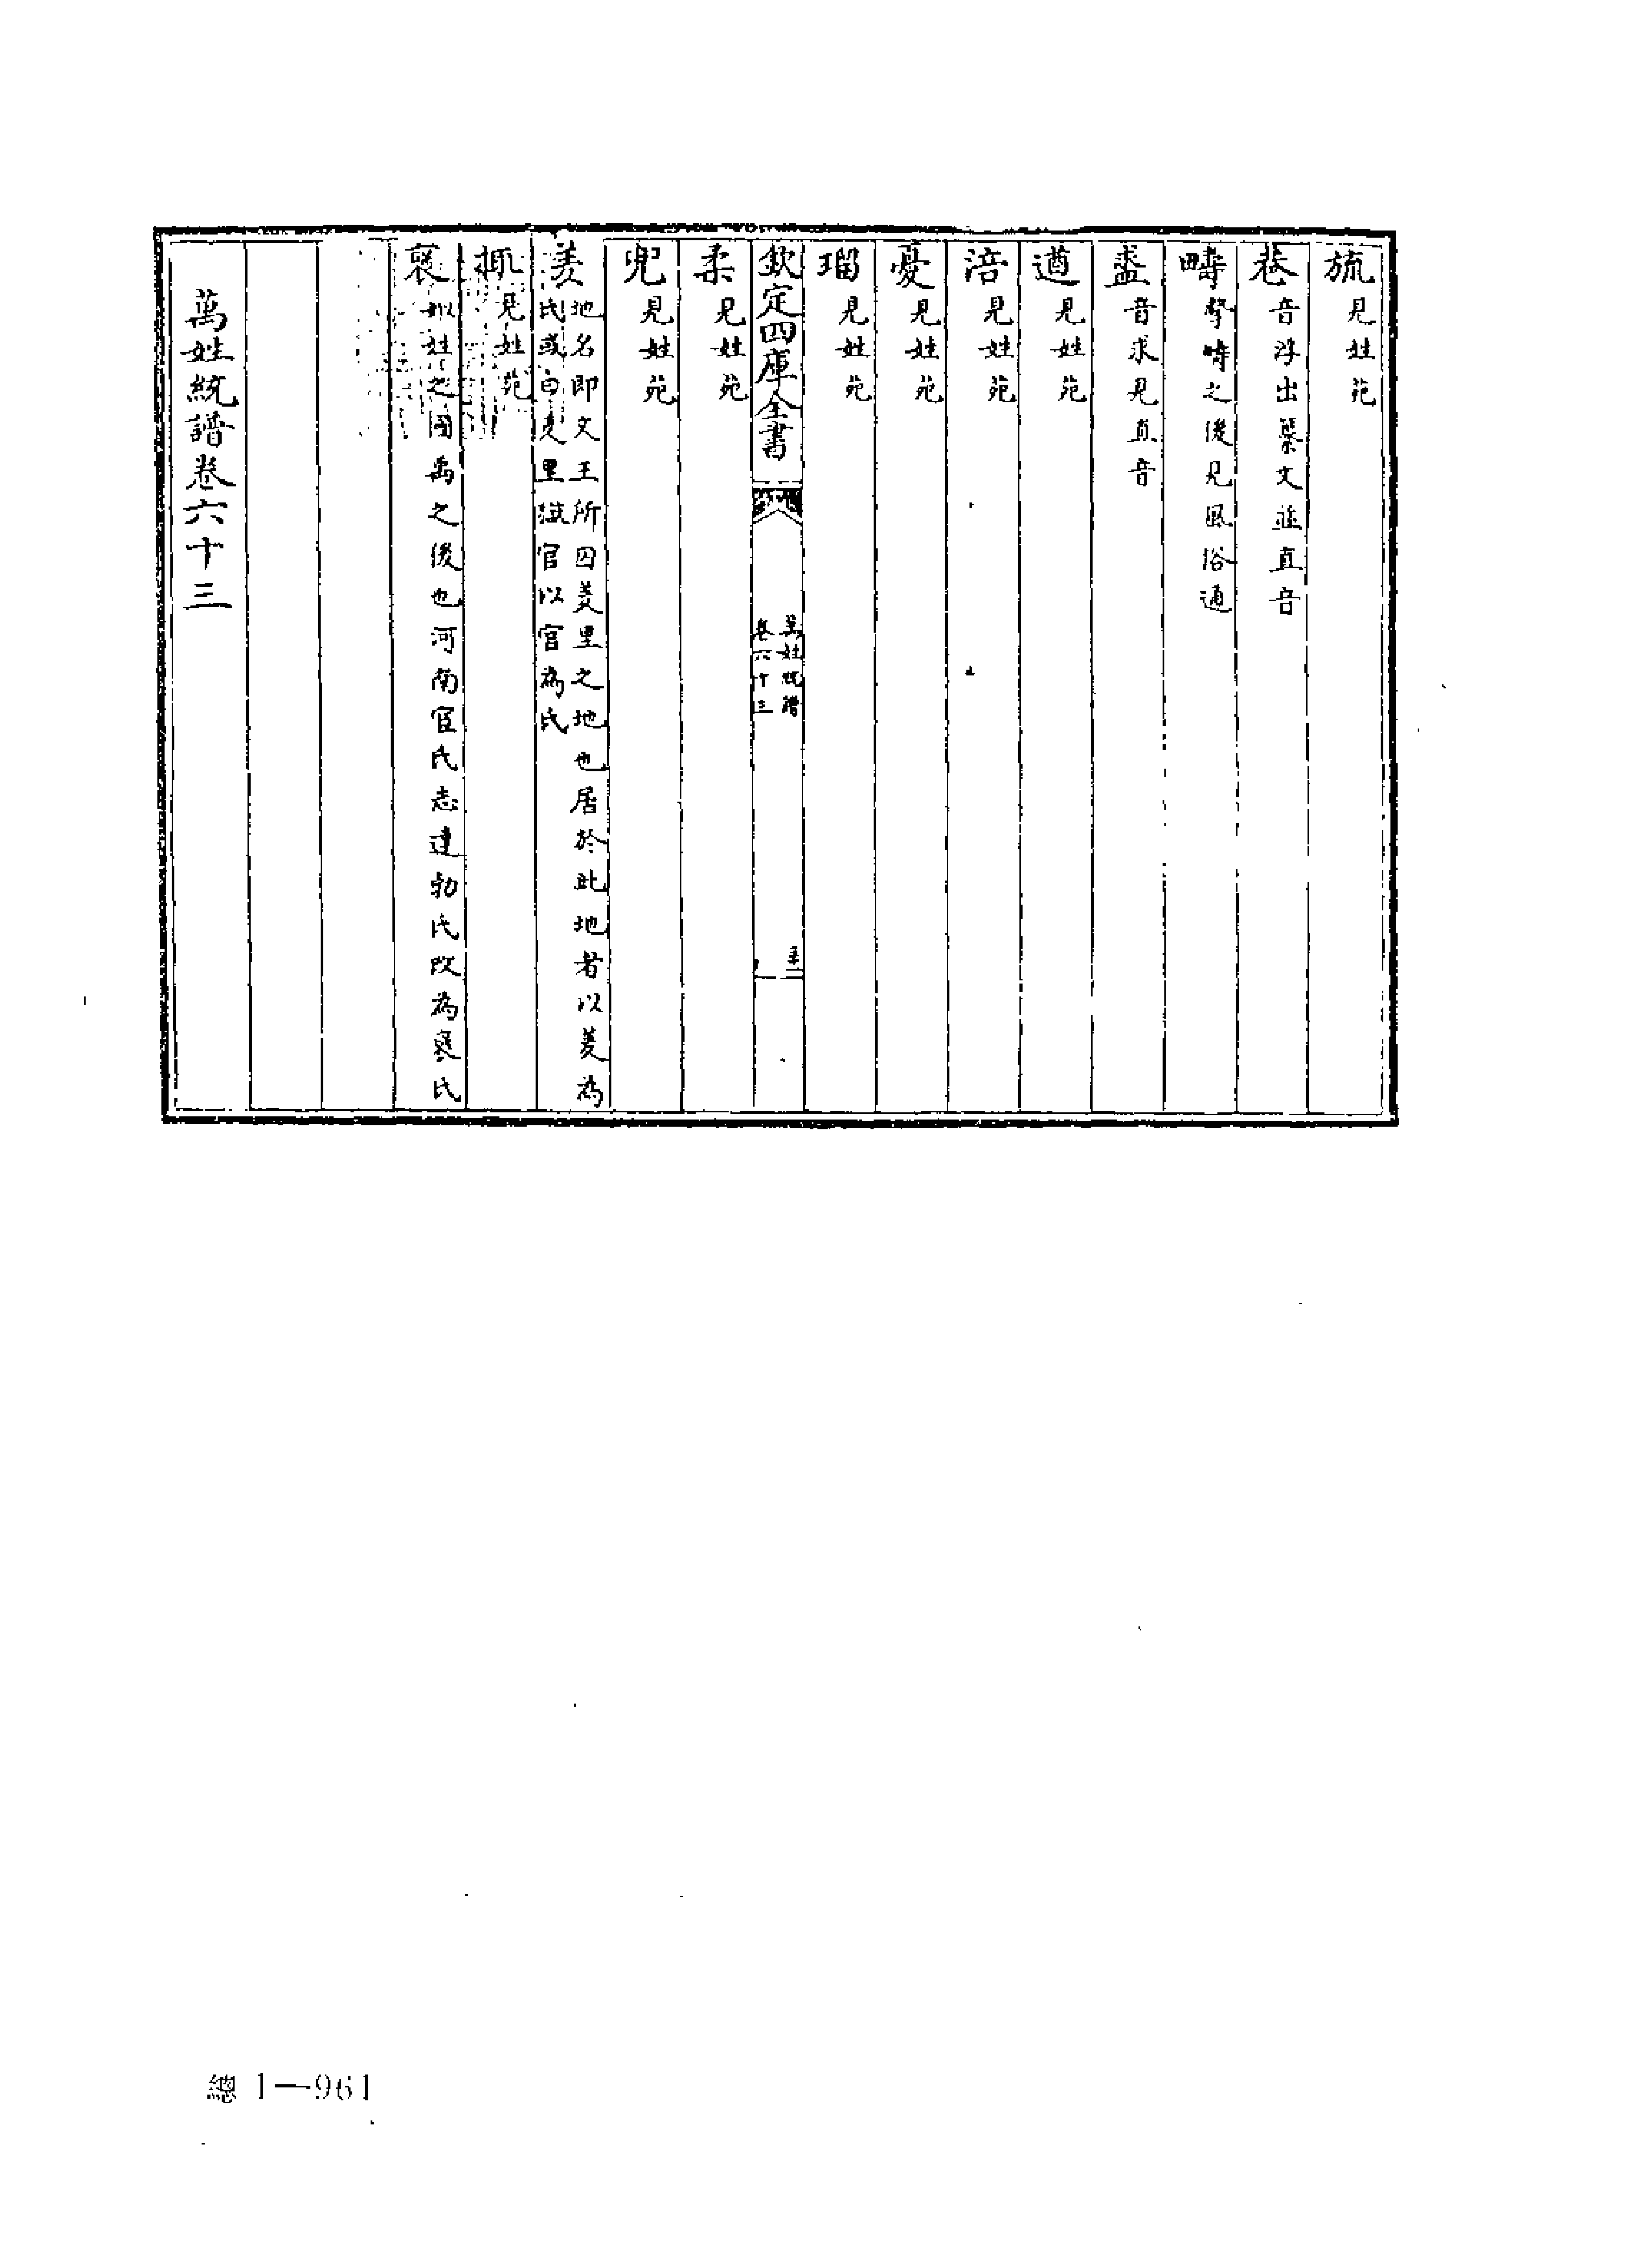 旒見姓苑
巷音浮出纂文並直音
疇摯疇之後見風俗通
盚音求見直音
遒見姓苑
涪見姓苑
憂見姓苑
瑠見姓苑
欽定四庫全書
萬姓統譜
卷六十三
柔見姓苑
兜見姓苑
羑地名即文王所囚羑里之地也居於此地者以羑為
氏或曰羑里獄官以官為氏
掫見姓苑
襃姒姓之國禹之後也河南官氏志達勃氏改為襃氏
萬姓統譜卷六十三
總1—961